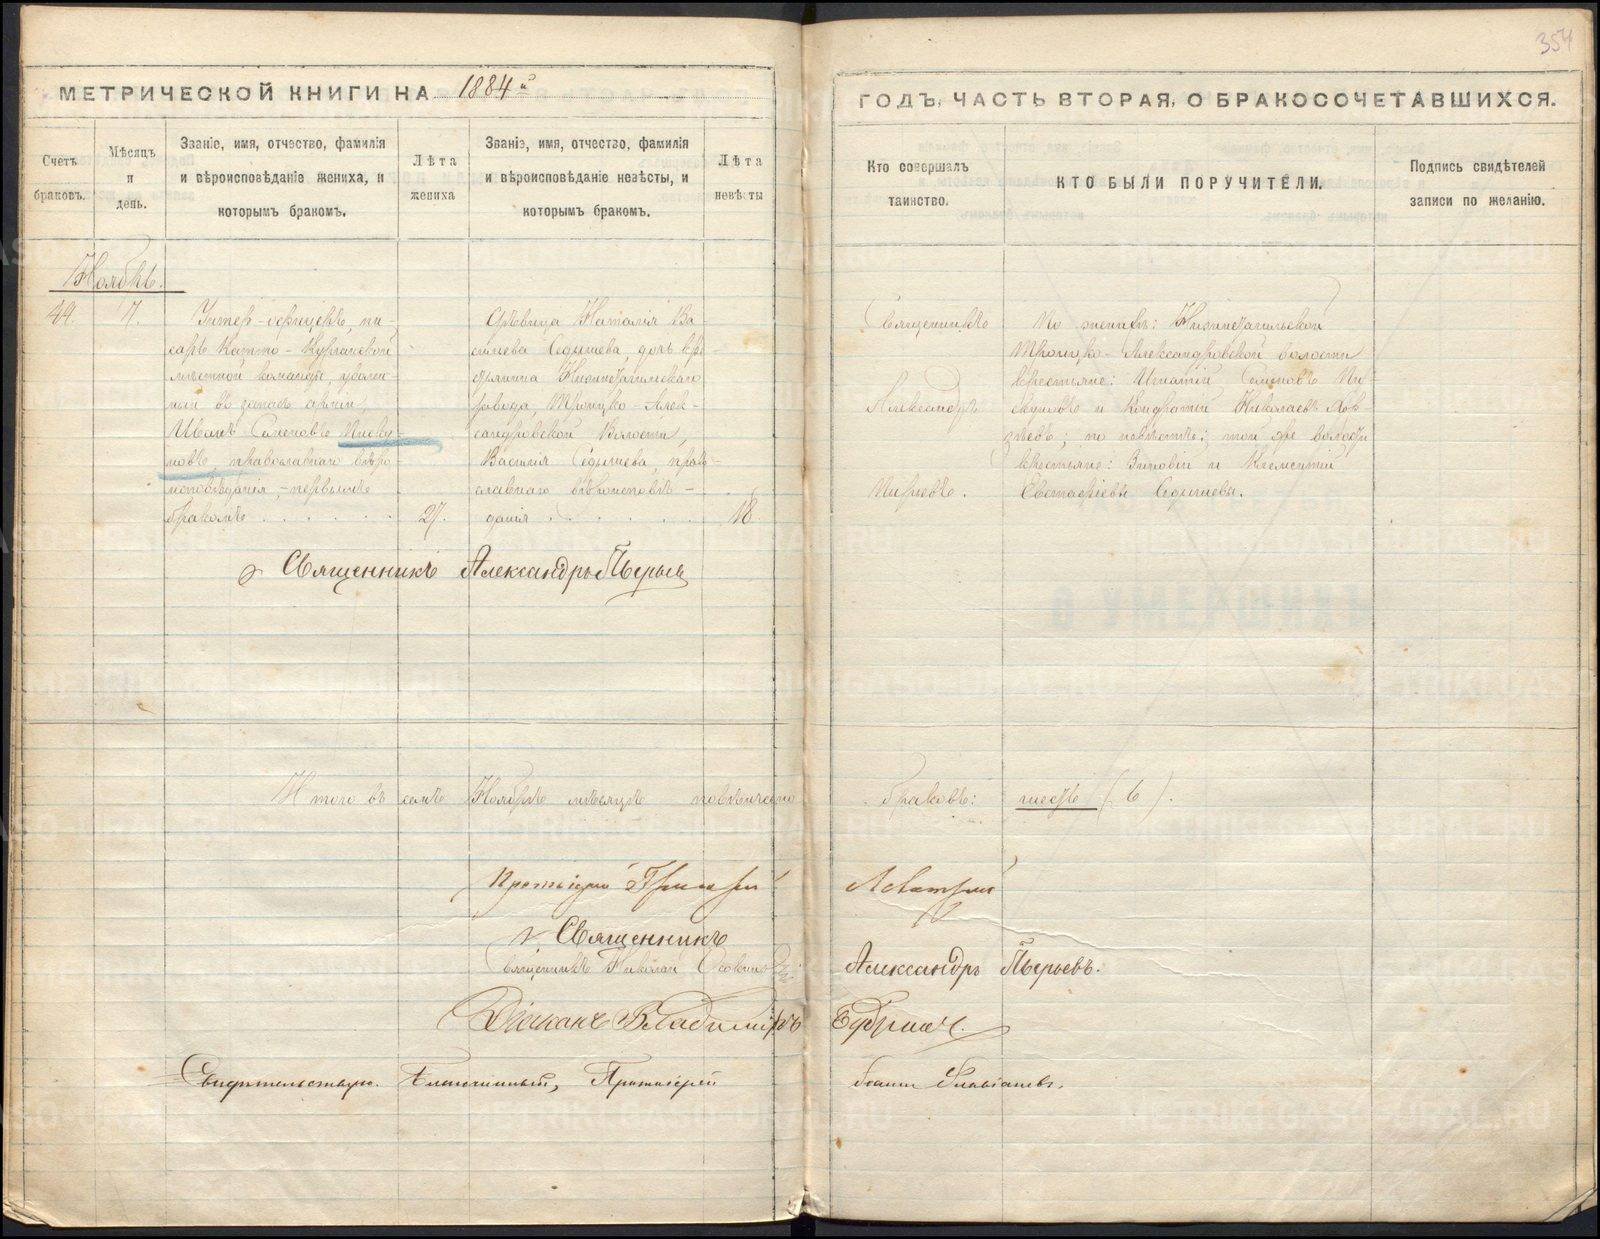 354
МЕТРИЧЕСКОЙ КНИГИ НА 1884й
ГОДЪ, ЧАСТЬ ВТОРАЯ, О БРАКОСОЧЕТАВШИХСЯ.
Счетъ браковъ.
Мѣсяцъ и день.
Званіе, имя, отчество, фамилія
и вѣроисповѣданіе жениха, и
которымъ бракомъ.
Лѣта
жениха
Званіе, имя, отчество, фамилія
и вѣроисповѣданіе невѣсты, и
которымъ бракомъ.
Лѣта
невѣсты
Кто совершалъ
таинство.
КТО БЫЛИ ПОРУЧИТЕЛИ.
Подпись свидѣтелей
записи по желанію.
Ноябрь.
49.
7.
Унтер-офицеръ, пи-
сарь Катто-Курганской
мѣстной команды, уволен-
ный въ запасъ арміи,
Иванъ Семеновъ Писку-
новъ, православнаго вѣро-
исповѣданія, первымъ
бракомъ
27.
Дѣвица Наталія Ва-
сильева Седышева, дочь кре-
стьянина Нижнетагильскаго
завода, Троицко-Алек-
сандровской Волости,
Василія Седышева, право-
славнаго вѣроисповѣ-
данія
18.
Священникъ
Александръ
Пырьевъ.
По женихѣ: Нижнетагильской
Троицко-Александровской волости
крестьяне: Игнатій Семеновъ Пи-
скуновъ и Кондратій Николаевъ
по невѣстѣ: той же волости
крестьяне: Зиновій и Климентій
Евстафіевы Седышевы.
Священникъ Александръ Пырьевъ
Итого въ семъ Ноябрѣ мѣсяцѣ повѣнчано браковъ: шесть (6).
Протоіерей Григорій
Священникъ Александръ Пырьевъ.
Священникъ Николай
Діаконъ Владимиръ
Свидѣтельствую. Благочинный, Протоіерей Іоаннъ
METRIKI.GASO-URAL.RU